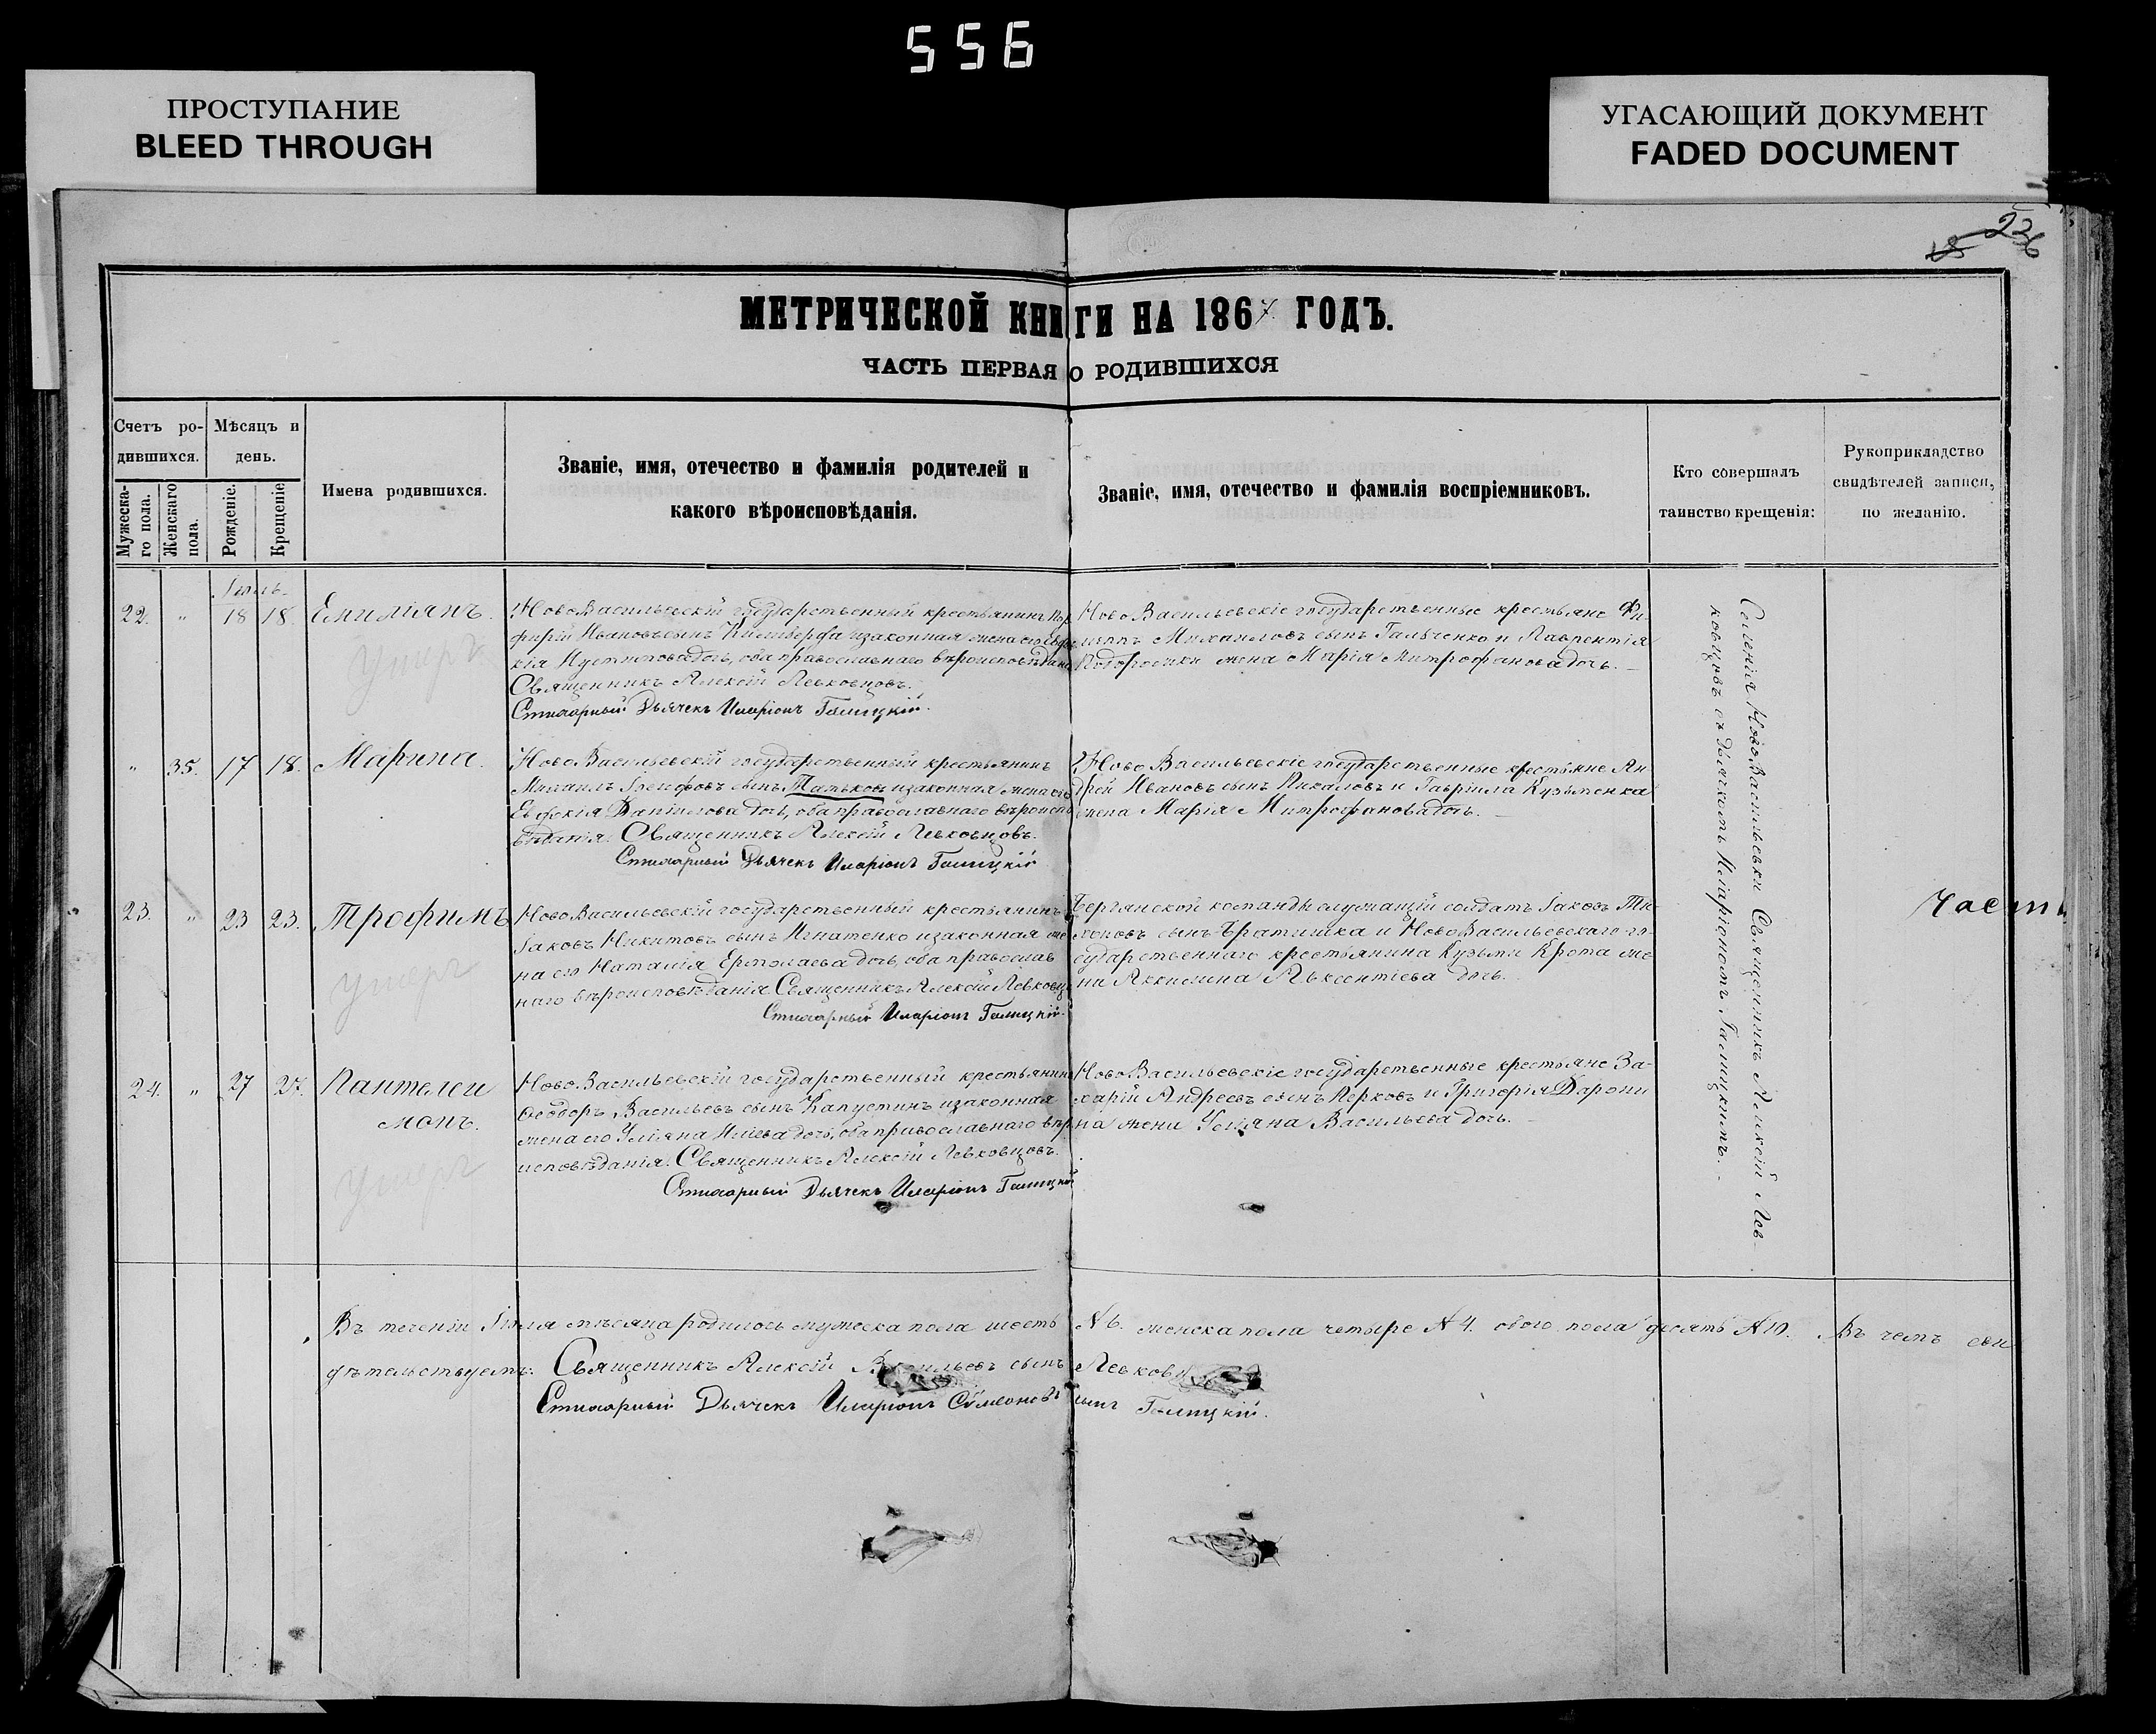 556
ПРОСТУПАНИЕ
BLEED THROUGH
УГАСАЮЩИЙ ДОКУМЕНТ
FADED DOCUMENT
236
МЕТРИЧЕСКОЙ КНИГИ НА 1867 ГОДЪ.
ЧАСТЬ ПЕРВАЯ О РОДИВШИХСЯ
Счетъ ро-
дившихся.
Мужеска-
го пола.
Женскаго
пола.
Мѣсяцъ и
день.
Рожденіе.
Крещеніе
Имена родившихся.
Званіе, имя, отечество и фамилія родителей и
какого вѣроисповѣданія.
Званіе, имя, отечество и фамилія воспріемниковъ.
Кто совершалъ
таинство крещенія:
Рукоприкладство
свидѣтелей записи,
по желанію.
Іюль.
22. " 18 18. Емиліянъ.
Умеръ
НовоВасильевскій государственный крестьянинъ Пор
фирій Ивановъ сынъ и законная жена его
кія дочь, оба православнаго вѣроисповѣдана
Священникъ Алексій Левковцовъ.
Стихарный Дьячекъ Иларіонъ Галицкій.
НовоВасильевскіе государственные крестьяне Фи-
липпъ Михаиловъ сынъ Гальченко и Лаврентія
жена Марія Митрофанова дочь. –
" 35. 17 18. Марина.
НовоВасильевскій государственный крестьянинъ
Михаилъ сынъ и законная жена его
Евфокія Даніилова дочь, оба православнаго вѣроиспо
вѣданія. Священникъ Алексій Левковцовъ.
Стихарный Дьячекъ Иларіонъ Галицкій
НовоВасильевскіе государственные крестьяне Ан-
дрей Ивановъ сынъ и Гавріила Кузьменка
жена Марія Митрофанова дочь. –
23. " 23 23. Трофимъ
Умеръ
НовоВасильевскій государственный крестьянинъ
Іаковъ Никитовъ сынъ Игнатенко и законная же
на его Наталія Ермолаева дочь, оба православ
наго вѣроисповѣданія. Священникъ Алексій Левковц
Стихарный Иларіонъ Галицкій.
Бердянской команды служащій солдатъ Іаковъ Ти-
хоновъ сынъ Братишка и НовоВасильевскаго го-
сударственнаго крестьянина Кузьмы Крота же
на Авксентіева дочь.
Часть
24. " 27 27. Пантелеи
монъ.
Умеръ
НовоВасильевскій государственный крестьянинъ
Ѳеодоръ Васильевъ сынъ Капустинъ и законная
жена его Уліяна Иліева дочь, оба православнаго вѣр
исповѣданія. Священникъ Алексій Левковцовъ.
Стихарный Дьячекъ Иларіонъ Галицкій
НовоВасильевскіе государственные крестьяне За-
харій Андреевъ сынъ и Григорія
на жена Уліяна Васильева дочь. –
Селенія НовоВасильевки Священникъ Алексій Лев-
ковцовъ съ дьячкомъ Иларіономъ Галицкимъ. –
Въ теченіи Іюля мѣсяца родилось мужеска пола шесть № 6. женска пола четыре № 4. обоего пола десять № 10. Въ чемъ сви
дѣтельствуемъ: Священникъ Алексій Васильевъ сынъ Левковц
Стихарный Дьячекъ Иларіонъ Сѵмеоновъ сынъ Галицкій.